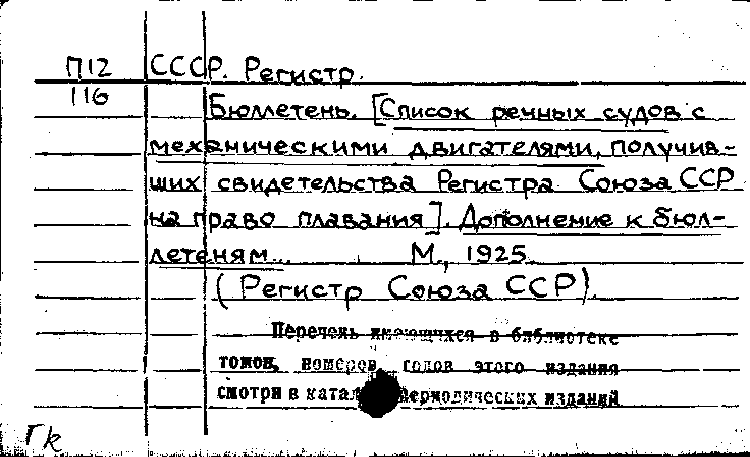 П12 СССР. Регистр.
116 Бюллетень. [Список речных судов с
механическими двигателями, получив-
ших свидетельства Регистра Союза ССР
на право плавания]. Дополнение к бюл-
летеням... М., 1925.
(Регистр Союза ССР).
Перечень имеющихся в библиотеке
томов, номеров, годов этого издания
смотри в катал периодических изданий
Гк